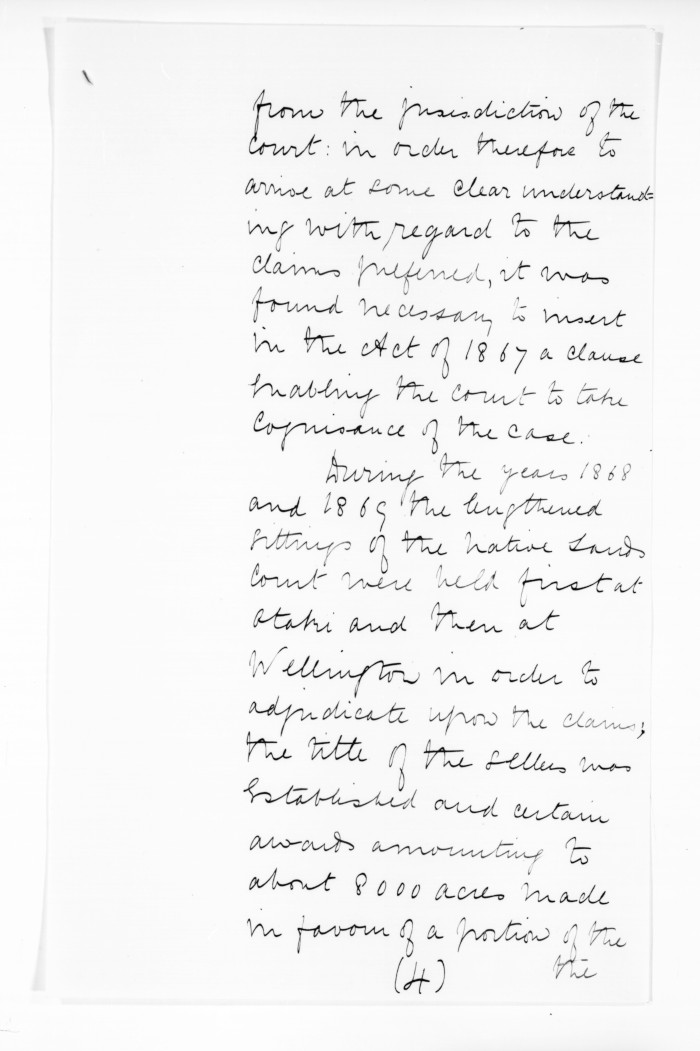 from the jurisdiction of the
Court: in order therefore to
arrive at some clear understand=
ing with regard to the
claims preferred, it was
found necessary to insert
in the Act of 1867 a clause
enabling the court to take
Cognisance of the case.
During the years 1868
and 1869 the lengthened
sittings of the Native Lands
Court were held first at
Otaki and then at
Wellington in order to
adjudicate upon the claims;
the title of the sellers was
Established and certain
awards amounting to
about 8000 acres made
in favour of a portion of the
(4) the